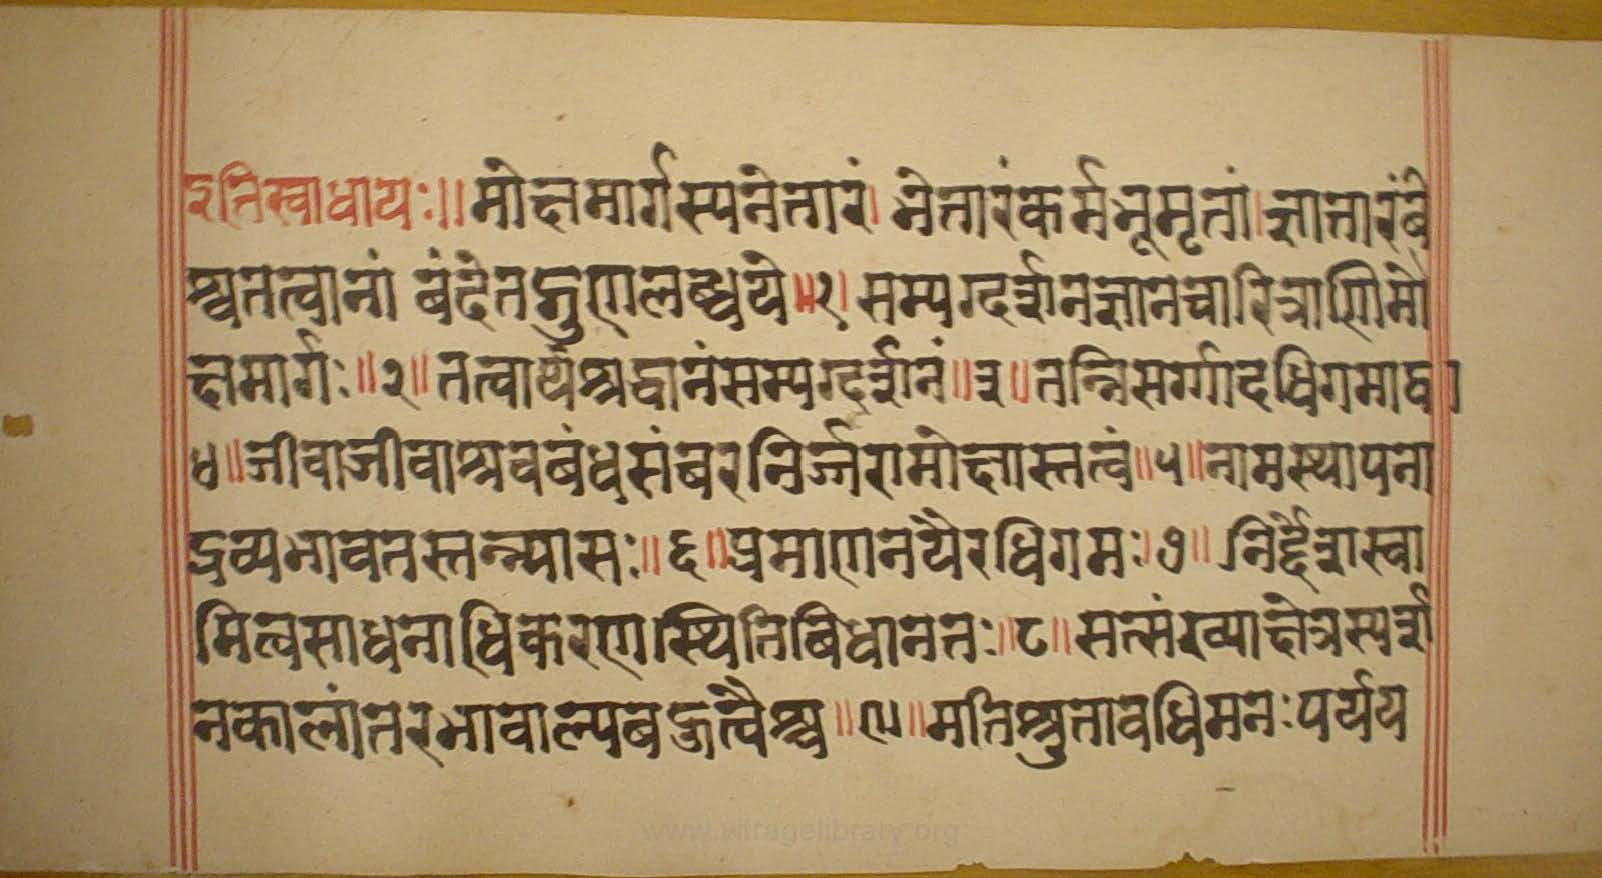 इतिस्वाधाय:॥ मोक्षमार्गस्यनेतारं। भेत्तारंकर्मभूमृतां। ज्ञात्तारंबि
श्वतत्वानां बंदेतद्गुणलब्ध्यये॥१। सम्यग्दर्शनज्ञानचारित्राणिमो
क्षमार्गः॥२॥ तत्वार्थश्रद्धानंसम्यग्दर्शनं॥३॥ तन्निसर्ग्गादधिगमाद्वा
४॥जीवाजीवाश्रवबंधसंबरनिर्ज्जरामोक्षास्तत्वं॥५॥नामस्थापना
द्रव्यभावतस्तन्न्यासः॥६॥प्रमाणनयैरधिगमः।७॥ निर्द्देशस्वा
मित्वसाधनाधिकरणस्थितिबिधानतः॥८॥ सत्संख्याक्षेत्रस्पर्श
नकालांतरभावाल्पबहुत्वैश्च॥९॥मतिश्रुतावधिमनःपर्यय
www.vitragelibrary.org